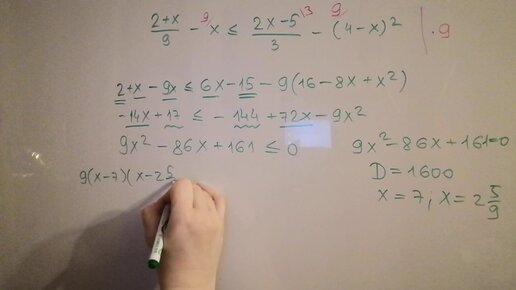 (2+x)/9 - x ≤ (2x-5)/3 - (4-x)² | ·9
9 \3 9
2+x-9x ≤ 6x-15-9(16-8x+x²)
-14x+17 ≤ -144+72x-9x²
9x²-86x+161 ≤ 0
9(x-7)(x-2 5/
9x²-86x+161=0
D=1600
x=7; x=2 5/9